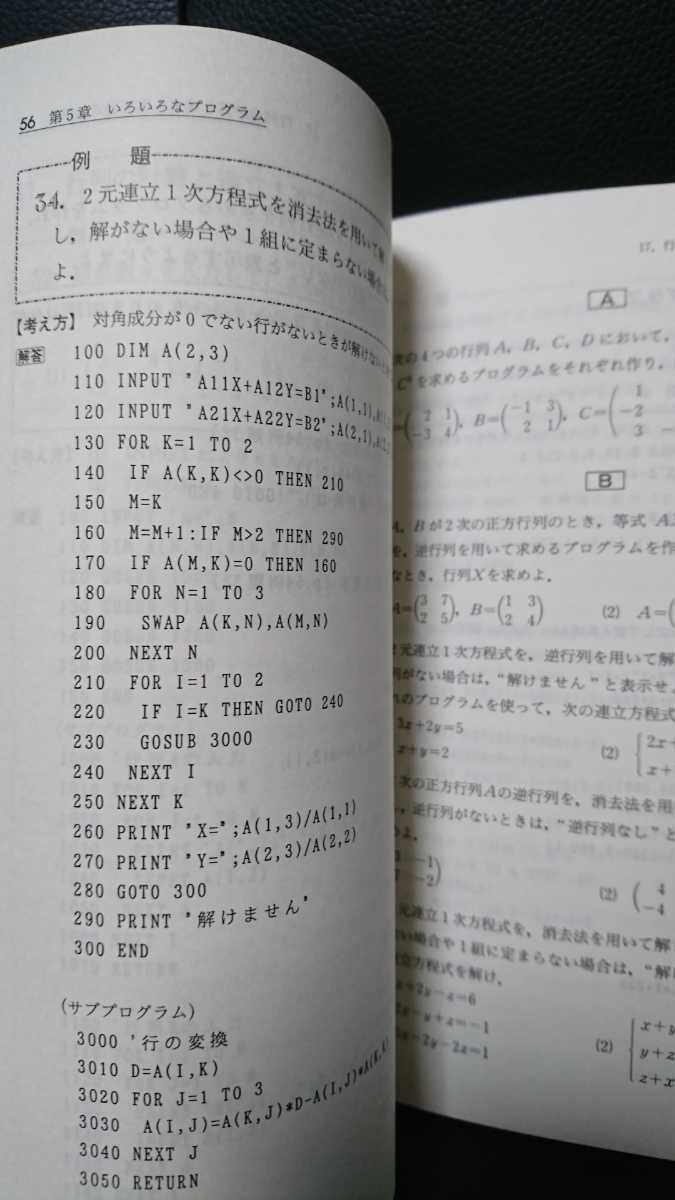 56 第5章 いろいろなプログラム
例 題
34. 2元連立1次方程式を消去法を用いて解
し，解がない場合や1組に定まらない場合
よ．
【考え方】 対角成分が0でない行がないときが解けない
解答 100 DIM A(2,3)
110 INPUT "A11X+A12Y=B1";A(1,1),A(1,
120 INPUT "A21X+A22Y=B2";A(2,1),A(2,
130 FOR K=1 TO 2
140 IF A(K,K)<>0 THEN 210
150 M=K
160 M=M+1:IF M>2 THEN 290
170 IF A(M,K)=0 THEN 160
180 FOR N=1 TO 3
190 SWAP A(K,N),A(M,N)
200 NEXT N
210 FOR I=1 TO 2
220 IF I=K THEN GOTO 240
230 GOSUB 3000
240 NEXT I
250 NEXT K
260 PRINT "X=";A(1,3)/A(1,1)
270 PRINT "Y=";A(2,3)/A(2,2)
280 GOTO 300
290 PRINT "解けません"
300 END
(サブプログラム)
3000 '行の変換
3010 D=A(I,K)
3020 FOR J=1 TO 3
3030 A(I,J)=A(K,J)*D-A(I,J)*A(K,K)
3040 NEXT J
3050 RETURN
17. 行
A
次の4つの行列 A，B，C，D において，
を求めるプログラムをそれぞれ作り，
2 1
-3 4 ，B=(-1 3
2 1)，C=( 1
-2
3
B
A，B が2次の正方行列のとき，等式 AX
を，逆行列を用いて求めるプログラムを作
なとき，行列Xを求めよ．
A=(3 7
2 5)，B=(1 3
2 4) (2) A=(
元連立1次方程式を，逆行列を用いて解
列がない場合は，"解けません"と表示せ
れのプログラムを使って，次の連立方程式
3x+2y=5
x+y=2 (2) {2x+
x+
次の正方行列Aの逆行列を，消去法を用
，逆行列がないときは，"逆行列なし"と
-1
-2) (2) ( 4
-4
元連立1次方程式を，消去法を用いて解
ない場合や1組に定まらない場合は，"解
立方程式を解け．
+2y-z=6
-y+z=-1
-2y-2z=1
(2) {x+y
y+z
z+x